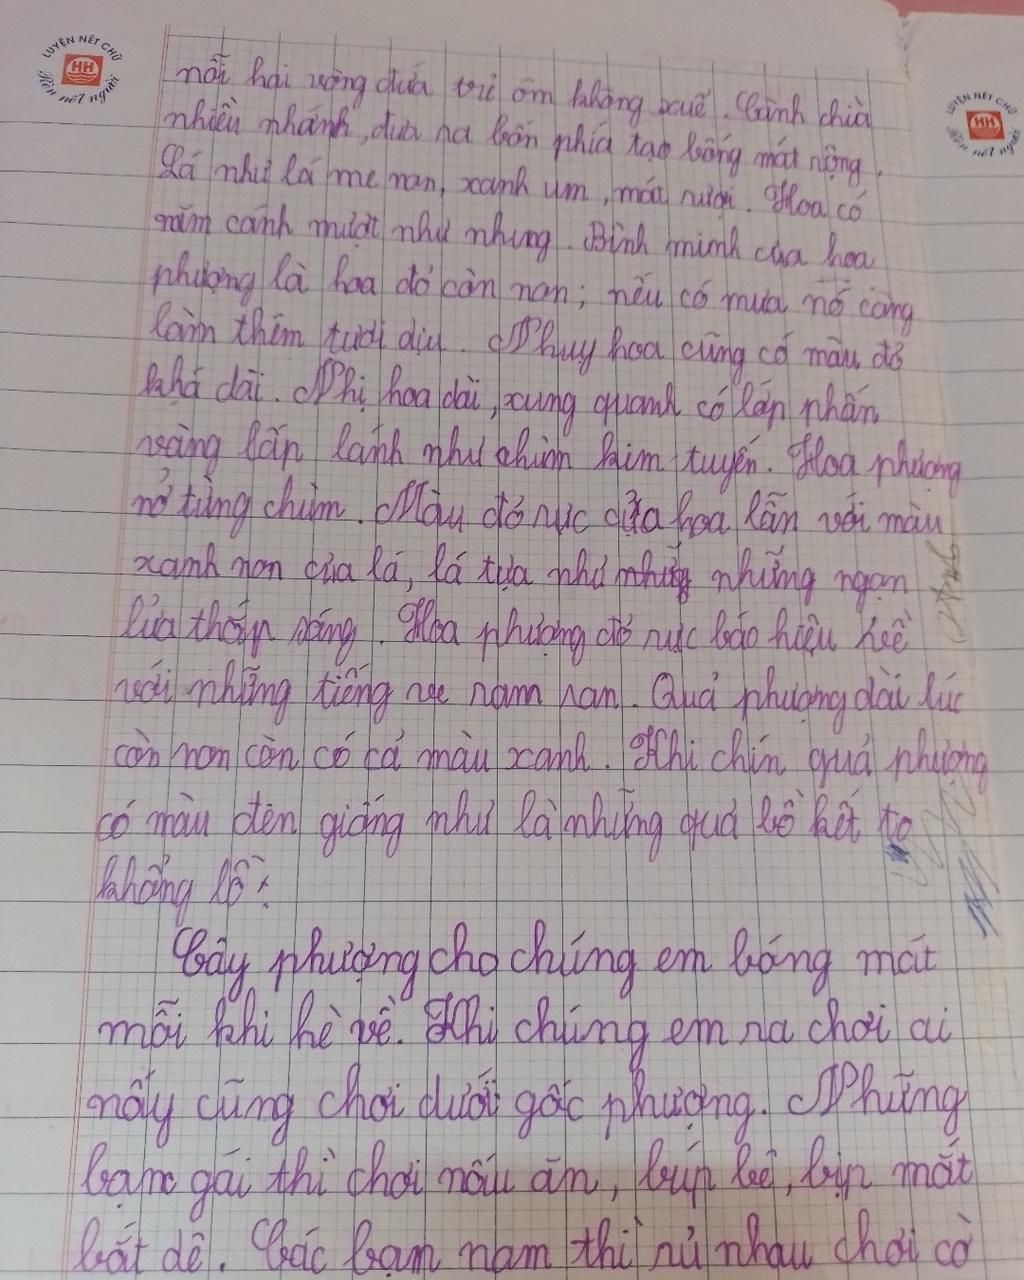 LUYỆN NÉT CHỮ
HH
Rèn nết người
LUYỆN NÉT CHỮ
HH
Rèn nết người
nỗi hai vòng đứa trẻ ôm không xuể. Cành chìa
nhiều nhánh, đưa ra bốn phía tạo bóng mát rộng.
Lá như lá me non, xanh um, mát rượi. Hoa có
năm cánh mượt như nhung. Bình minh của hoa
phượng là hoa đỏ còn non; nếu có mưa nó càng
làm thêm tươi dịu. Nhuỵ hoa cũng có màu đỏ
khá dài. Nhị hoa dài, xung quanh có lớp phấn
vàng lấp lánh như chùm kim tuyến. Hoa phượng
nở từng chùm. Màu đỏ rực của hoa lẫn với màu
xanh non của lá, lá tựa như những ngọn
lửa thắp sáng. Hoa phượng đỏ rực báo hiệu hè
với những tiếng ve ram ran. Quả phượng dài lúc
còn non còn có cả màu xanh. Khi chín quả phượng
có màu đen giống như là những quả bồ kết to
khổng lồ.
Cây phượng cho chúng em bóng mát
mỗi khi hè về. Khi chúng em ra chơi ai
nấy cũng chơi dưới gốc phượng. Những
bạn gái thì chơi nấu ăn, búp bê, bịp mắt
bắt dê. Các bạn nam thì rủ nhau chơi cờ